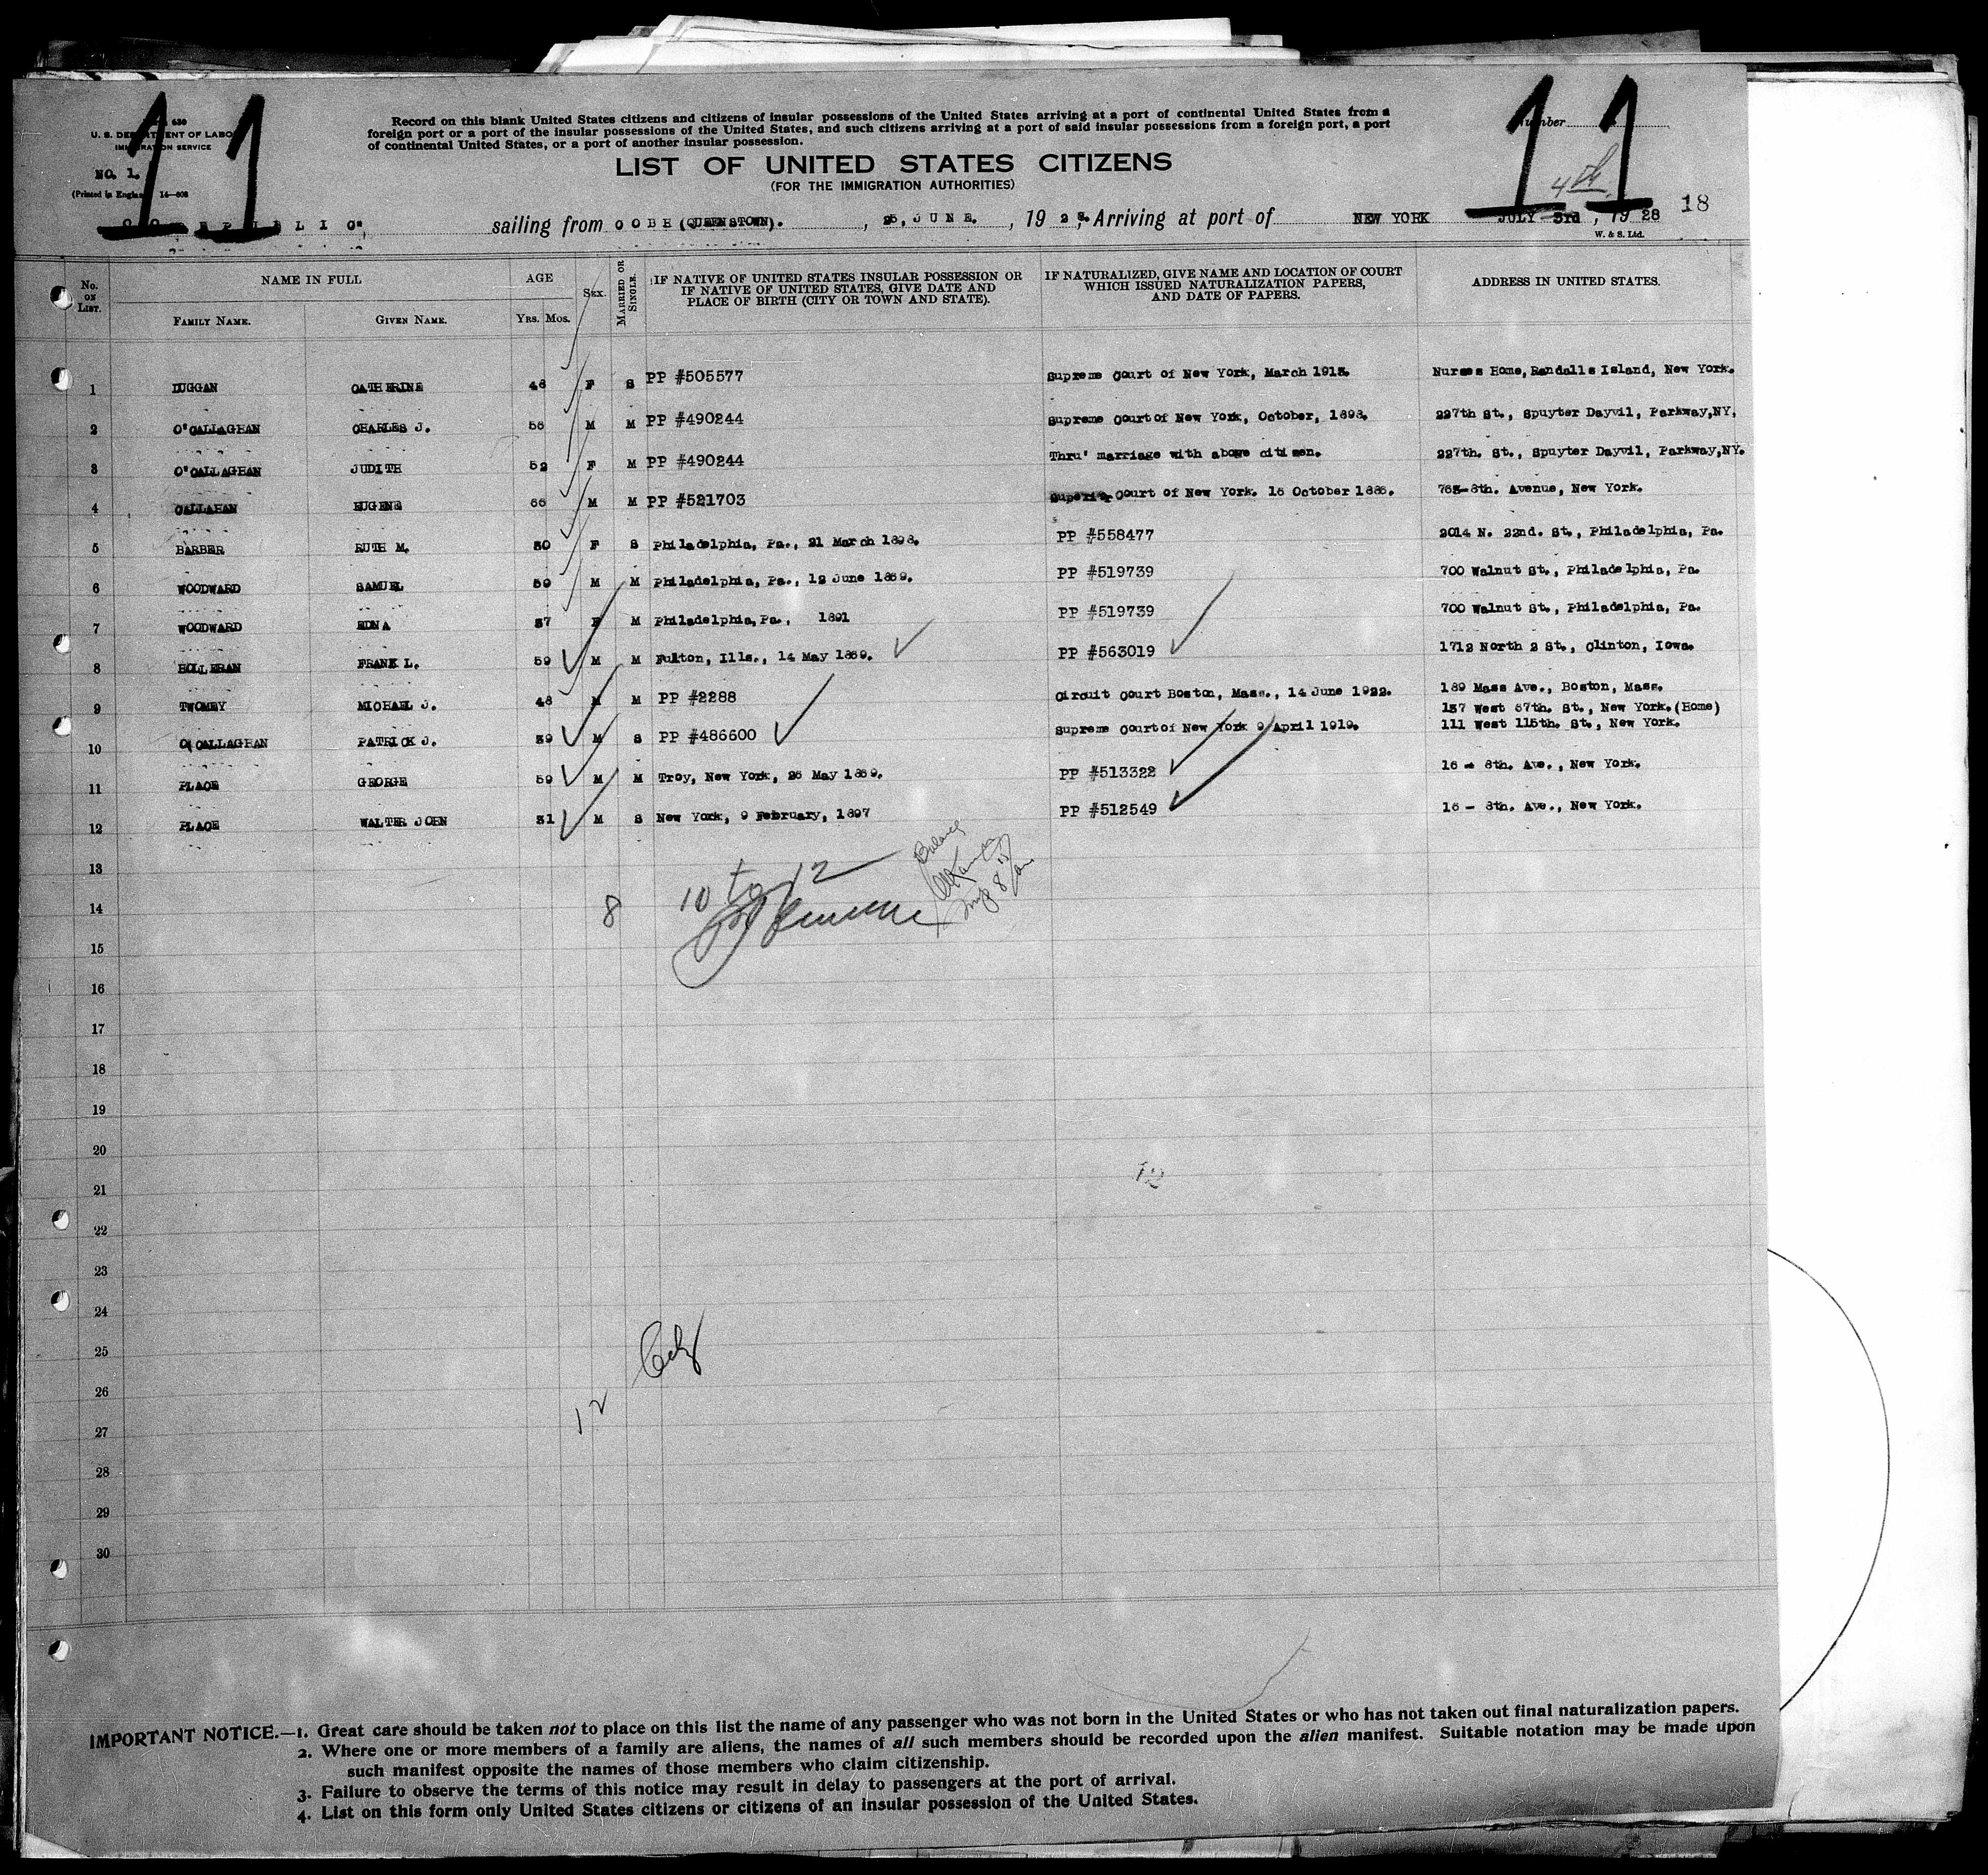 11
630
U. S. DEPARTMENT OF LABOR
IMMIGRATION SERVICE
NO. 1.
(Printed in England) 14—808
Record on this blank United States citizens and citizens of insular possessions of the United States arriving at a port of continental United States from a
foreign port or a port of the insular possessions of the United States, and such citizens arriving at a port of said insular possessions from a foreign port, a port
of continental United States, or a port of another insular possession.
LIST OF UNITED STATES CITIZENS
(FOR THE IMMIGRATION AUTHORITIES)
11
Number
4th
18
sailing from COBH (QUEENSTOWN). , 25, JUNE. , 1928, Arriving at port of NEW YORK JULY 3rd , 1928
W. & S. Ltd.
No. ON LIST. NAME IN FULL AGE SEX. MARRIED OR SINGLE. IF NATIVE OF UNITED STATES INSULAR POSSESSION OR IF NATIVE OF UNITED STATES, GIVE DATE AND PLACE OF BIRTH (CITY OR TOWN AND STATE). IF NATURALIZED, GIVE NAME AND LOCATION OF COURT WHICH ISSUED NATURALIZATION PAPERS, AND DATE OF PAPERS. ADDRESS IN UNITED STATES.
FAMILY NAME. GIVEN NAME. YRS. MOS.
1 DUGGAN CATHERINE 46 F S PP #505577 Supreme Court of New York, March 1913. Nurses Home, Randalls Island, New York.
2 O'CALLAGHAN CHARLES J. M M PP #490244 Supreme Court of New York, October, 1898. 227th St., Spuyter Dayvil, Parkway,NY.
3 O'CALLAGHAN JUDITH 52 F M PP #490244 Thru' marriage with above citizen. 227th. St., Spuyter Dayvil, Parkway,NY.
4 CALLAHAN EUGENE 66 M M PP #521703 Superior Court of New York. 16 October 1886. 763-8th. Avenue, New York.
5 BARBER RUTH M. 30 F S Philadelphia, Pa., 21 March 1898. PP #558477 2014 N. 22nd. St., Philadelphia, Pa.
6 WOODWARD SAMUEL 59 M M Philadelphia, Pa., 12 June 1869. PP #519739 700 Walnut St., Philadelphia, Pa.
7 WOODWARD EDNA 37 F M Philadelphia, Pa., 1891 PP #519739 700 Walnut St., Philadelphia, Pa.
8 HOLLERAN FRANK L. 59 M M Fulton, Ills., 14 May 1869. PP #563019 1712 North 2 St., Clinton, Iowa.
9 TWOMEY MICHAEL J. 48 M M PP #2288 Circuit Court Boston, Mass., 14 June 1922. 189 Mass Ave., Boston, Mass.
157 West 87th. St., New York.(Home)
10 O'CALLAGHAN PATRICK J. 39 M S PP #486600 Supreme Court of New York 9 April 1919. 111 West 115th. St., New York.
11 PLACE GEORGE 59 M M Troy, New York, 26 May 1869. PP #513322 16 - 8th. Ave., New York.
12 PLACE WALTER JOHN 31 M S New York, 9 February, 1897 PP #512549 16 - 8th. Ave., New York.
13
10 to 12
Balance
14
8
15
16
17
18
19
20
12
21
22
23
24
25
26
12
27
28
29
30
IMPORTANT NOTICE.—1. Great care should be taken not to place on this list the name of any passenger who was not born in the United States or who has not taken out final naturalization papers.
2. Where one or more members of a family are aliens, the names of all such members should be recorded upon the alien manifest. Suitable notation may be made upon
such manifest opposite the names of those members who claim citizenship.
3. Failure to observe the terms of this notice may result in delay to passengers at the port of arrival.
4. List on this form only United States citizens or citizens of an insular possession of the United States.